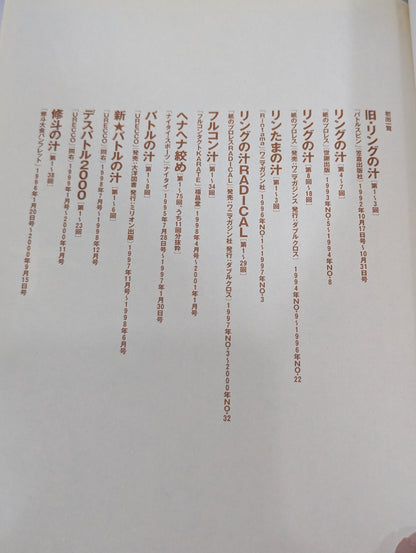 初出一覧
旧・リングの汁[第1～3回]
『バトルスピン』笠倉出版社　1992年10月17日号～10月31日号
リングの汁[第4～7回]
『紙のプロレス』世謝出版　1993年NO・5～1994年NO・8
リングの汁[第8～18回]
『紙のプロレス』発売・ワニマガジン社 発行・ダブルクロス　1994年NO・9～1996年NO・22
リンたまの汁[第1～3回]
『Rintama』ワニマガジン社　1996年NO・1～1997年NO・3
リングの汁RADICAL[第1～29回]
『紙のプロレスRADICAL』発売・ワニマガジン社 発行・ダブルクロス　1997年NO・3～2000年NO・32
フルコン汁[第1～34回]
『フルコンタクトKARATE』福昌堂　1998年4月号～2001年1月号
ヘナヘナ絞め[第1～75回、うち11回分抜粋]
『ナイタイスポーツ』ナイタイ　1995年7月28日号～1997年1月30日号
バトルの汁[第1～8回]
『URECCO』発売・大洋図書 発行・ミリオン出版　1997年11月号～1998年6月号
新★バトルの汁[第1～6回]
『URECCO』同右　1998年7月号～1998年12月号
デスバトル2000[第1～23回]
『URECCO』同右　1999年1月号～2000年11月号
修斗の汁[第1～38回]
『修斗大会パンフレット』　1996年1月20日号～2000年9月15日号